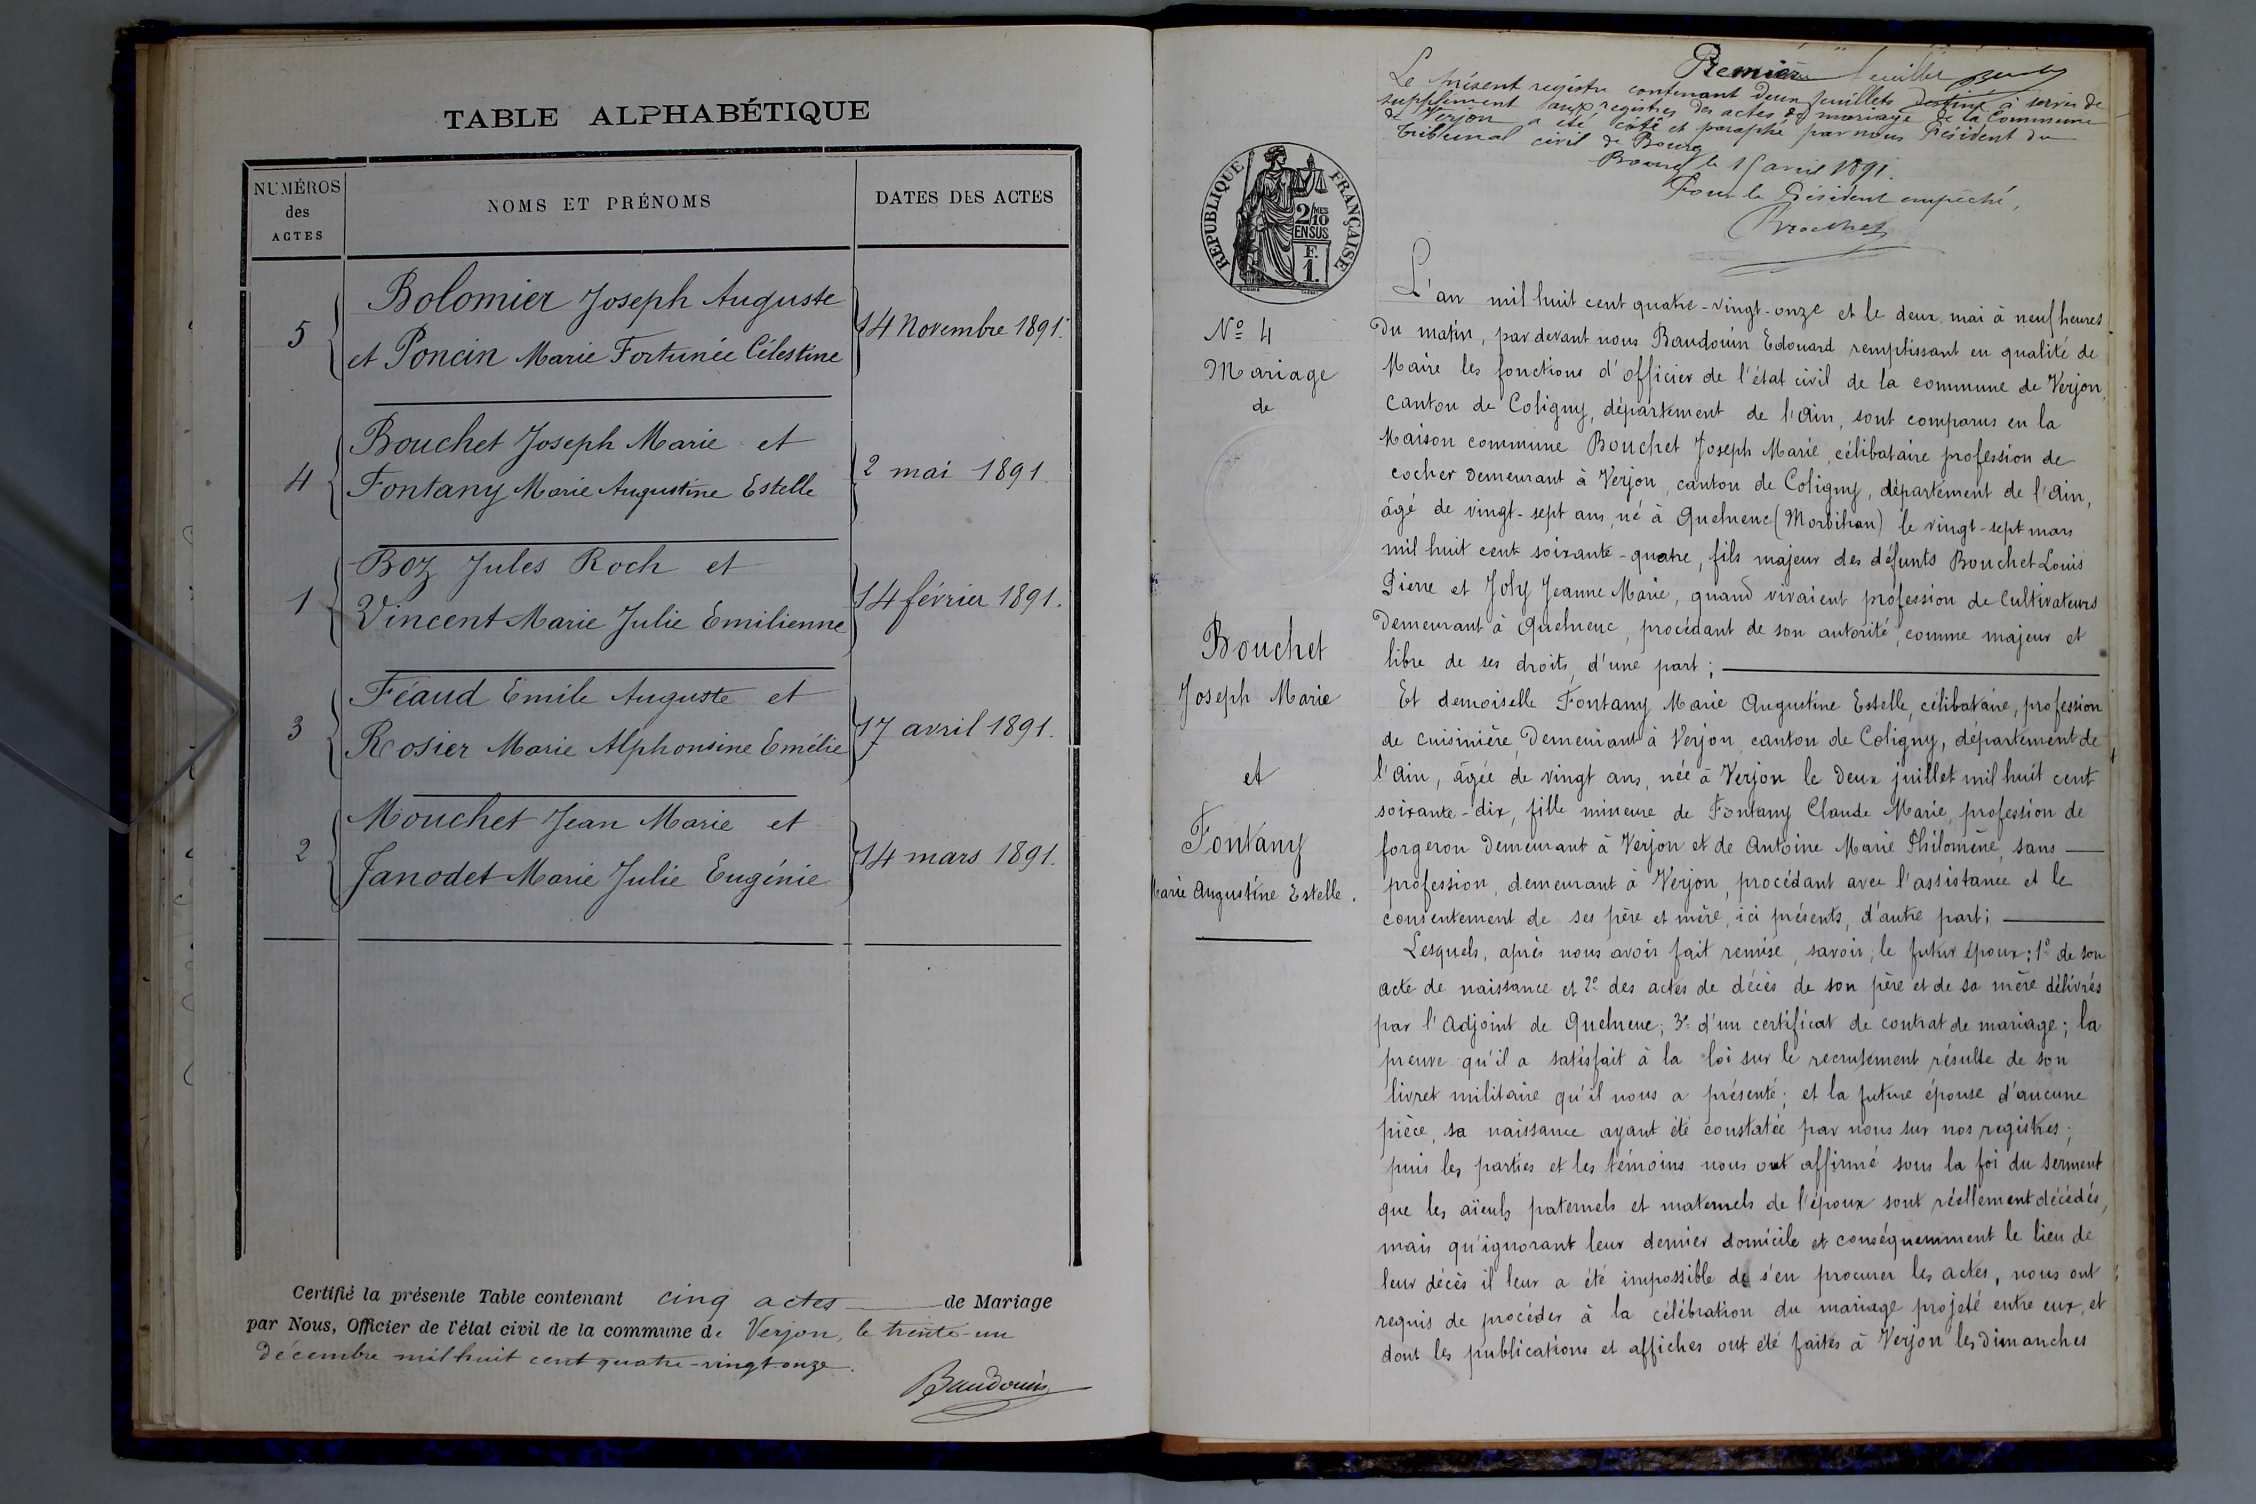 TABLE ALPHABÉTIQUE
NUMÉROS des ACTES
NOMS ET PRÉNOMS
DATES DES ACTES
5
Bolomier Joseph Auguste
et Poncin Marie Fortunée Célestine
14 Novembre 1891.
4
Bouchet Joseph Marie et
Fontany Marie Augustine Estelle
2 mai 1891.
1
Boz Jules Roch et
Vincent Marie Julie Emilienne
14 février 1891.
3
Féaud Emile Auguste et
Rosier Marie Alphonsine Emélie
17 avril 1891.
2
Mouchet Jean Marie et
Janodet Marie Julie Eugénie
14 mars 1891.
Certifié la présente Table contenant cinq actes de Mariage
par Nous, Officier de l'état civil de la commune de Verjon, le trente-un
décembre mil huit cent quatre-vingt-onze.
Baudouin
Premier feuillet
Le présent registre contenant deux feuillets destiné à servir de
supplément aux registres des actes de mariage de la Commune
de Verjon a été coté et paraphé par nous Président du
tribunal civil de Bourg
Bourg le 15 avril 1891.
Pour le Président empêché,
RÉPUBLIQUE FRANÇAISE
2/10MES
EN SUS
F.
1.
No 4
Mariage
de
Bouchet
Joseph Marie
et
Fontany
Marie Augustine Estelle.
L'an mil huit cent quatre-vingt-onze et le deux mai à neuf heures
du matin, par devant nous Baudouin Edouard remplissant en qualité de
Maire les fonctions d'officier de l'état civil de la commune de Verjon,
canton de Coligny, département de l'Ain, sont comparus en la
Maison commune Bouchet Joseph Marie, célibataire profession de
cocher demeurant à Verjon, canton de Coligny, département de l'Ain,
âgé de vingt-sept ans, né à Quelneuc (Morbihan) le vingt-sept mars
mil huit cent soixante-quatre, fils majeur des défunts Bouchet Louis
Pierre et Joly Jeanne Marie, quand vivaient profession de Cultivateurs
demeurant à Quelneuc, procédant de son autorité, comme majeur et
libre de ses droits, d'une part;
Et demoiselle Fontany Marie Augustine Estelle, célibataire, profession
de cuisinière, demeurant à Verjon canton de Coligny, département de
l'Ain, âgée de vingt ans, née à Verjon le deux juillet mil huit cent
soixante-dix, fille mineure de Fontany Claude Marie, profession de
forgeron demeurant à Verjon et de Antoine Marie Philomène, sans
profession, demeurant à Verjon, procédant avec l'assistance et le
consentement de ses père et mère, ici présents, d'autre part;
Lesquels, après nous avoir fait remise, savoir; le futur époux: 1º de son
acte de naissance et 2º des actes de décès de son père et de sa mère délivrés
par l'Adjoint de Quelneuc; 3º d'un certificat de contrat de mariage; la
preuve qu'il a satisfait à la loi sur le recrutement résulte de son
livret militaire qu'il nous a présenté; et la future épouse d'aucune
pièce, sa naissance ayant été constatée par nous sur nos registres;
puis les parties et les témoins nous ont affirmé sous la foi du serment
que les aïeuls paternels et maternels de l'époux sont réellement décédés,
mais qu'ignorant leur dernier domicile et conséquemment le lieu de
leur décès il leur a été impossible de s'en procurer les actes, nous ont
requis de procéder à la célébration du mariage projeté entre eux, et
dont les publications et affiches ont été faites à Verjon les dimanches